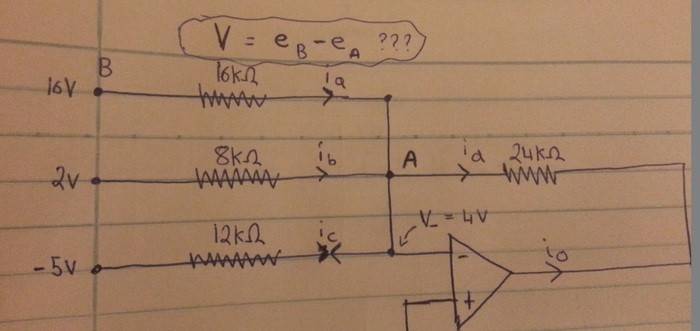 V = e_B - e_A ???
B
16V
16kΩ
i_a
2V
8kΩ
i_b
A
i_d
24kΩ
-5V
12kΩ
i_c
V_- = 4V
-
+
i_o